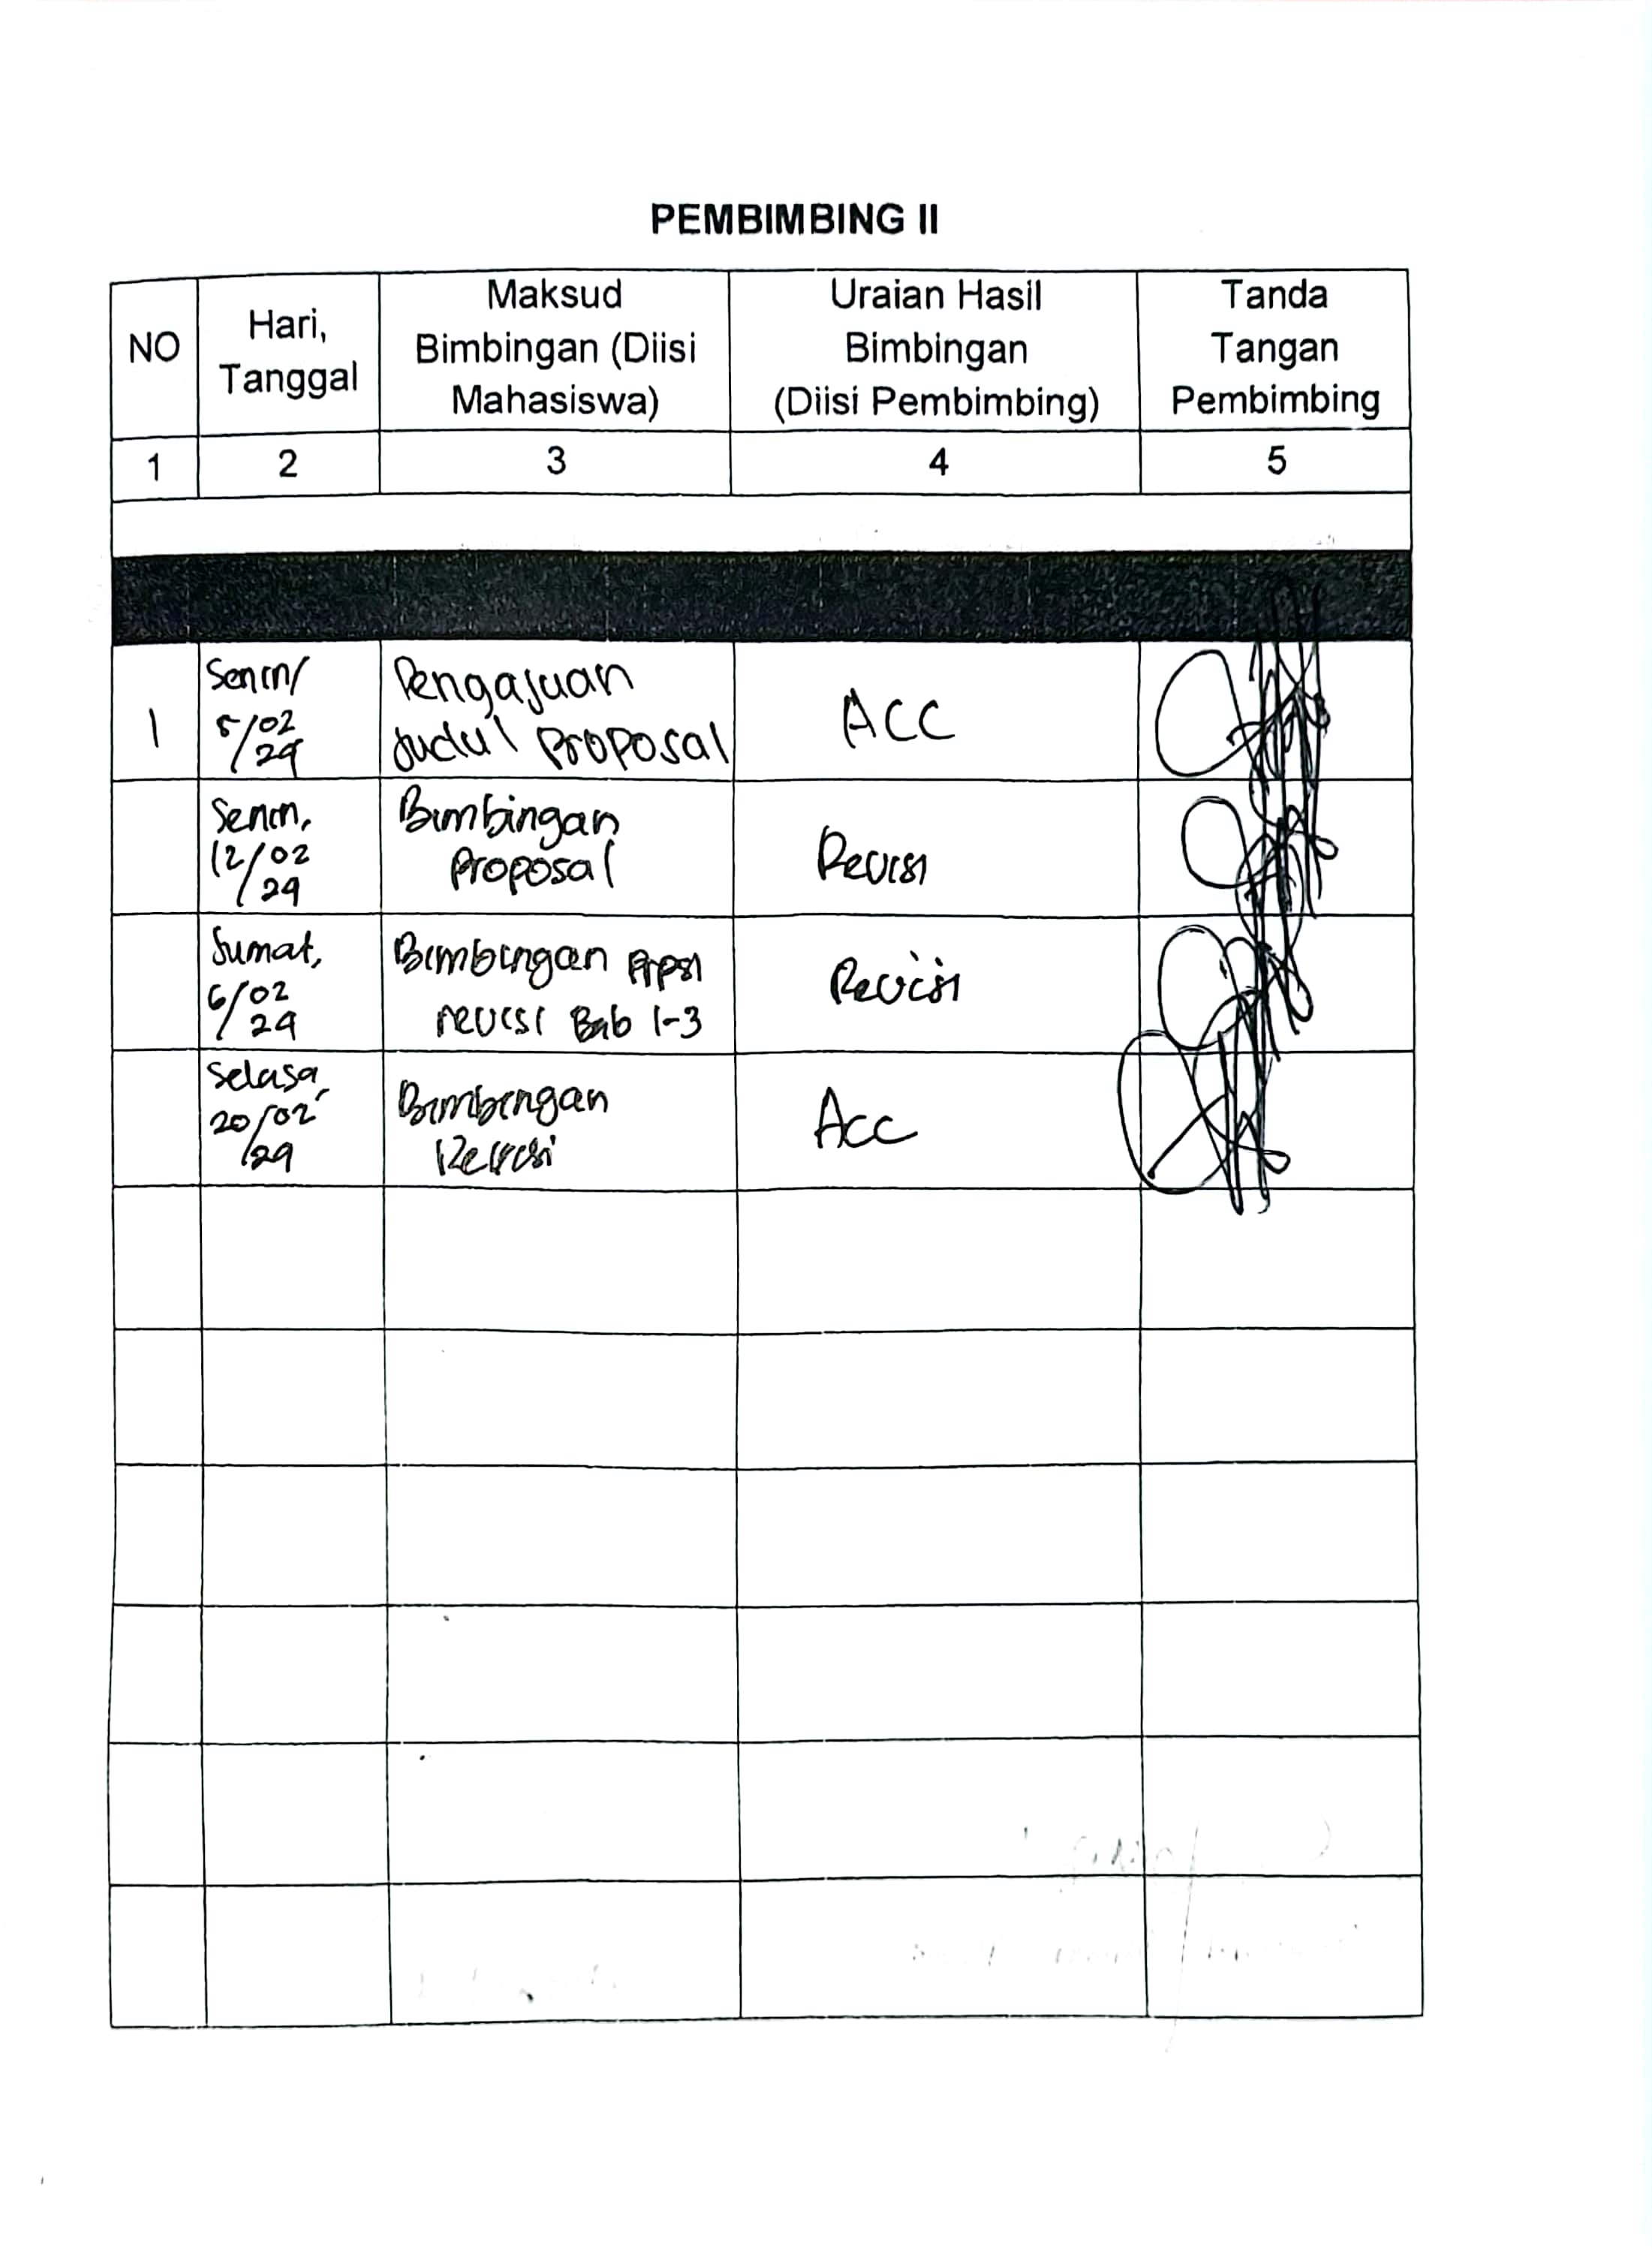 PEMBIMBING II
NO
Hari,
Tanggal
Maksud
Bimbingan (Diisi
Mahasiswa)
Uraian Hasil
Bimbingan
(Diisi Pembimbing)
Tanda
Tangan
Pembimbing
1
2
3
4
5
1
Senin/
5/02
/24
Pengajuan
Judul Proposal
ACC
Senin,
12/02
/24
Bimbingan
Proposal
Revisi
Jumat,
6/02
/24
Bimbingan
revisi Bab 1-3
Revisi
Selasa,
20/02
/24
Bimbingan
Revisi
Acc